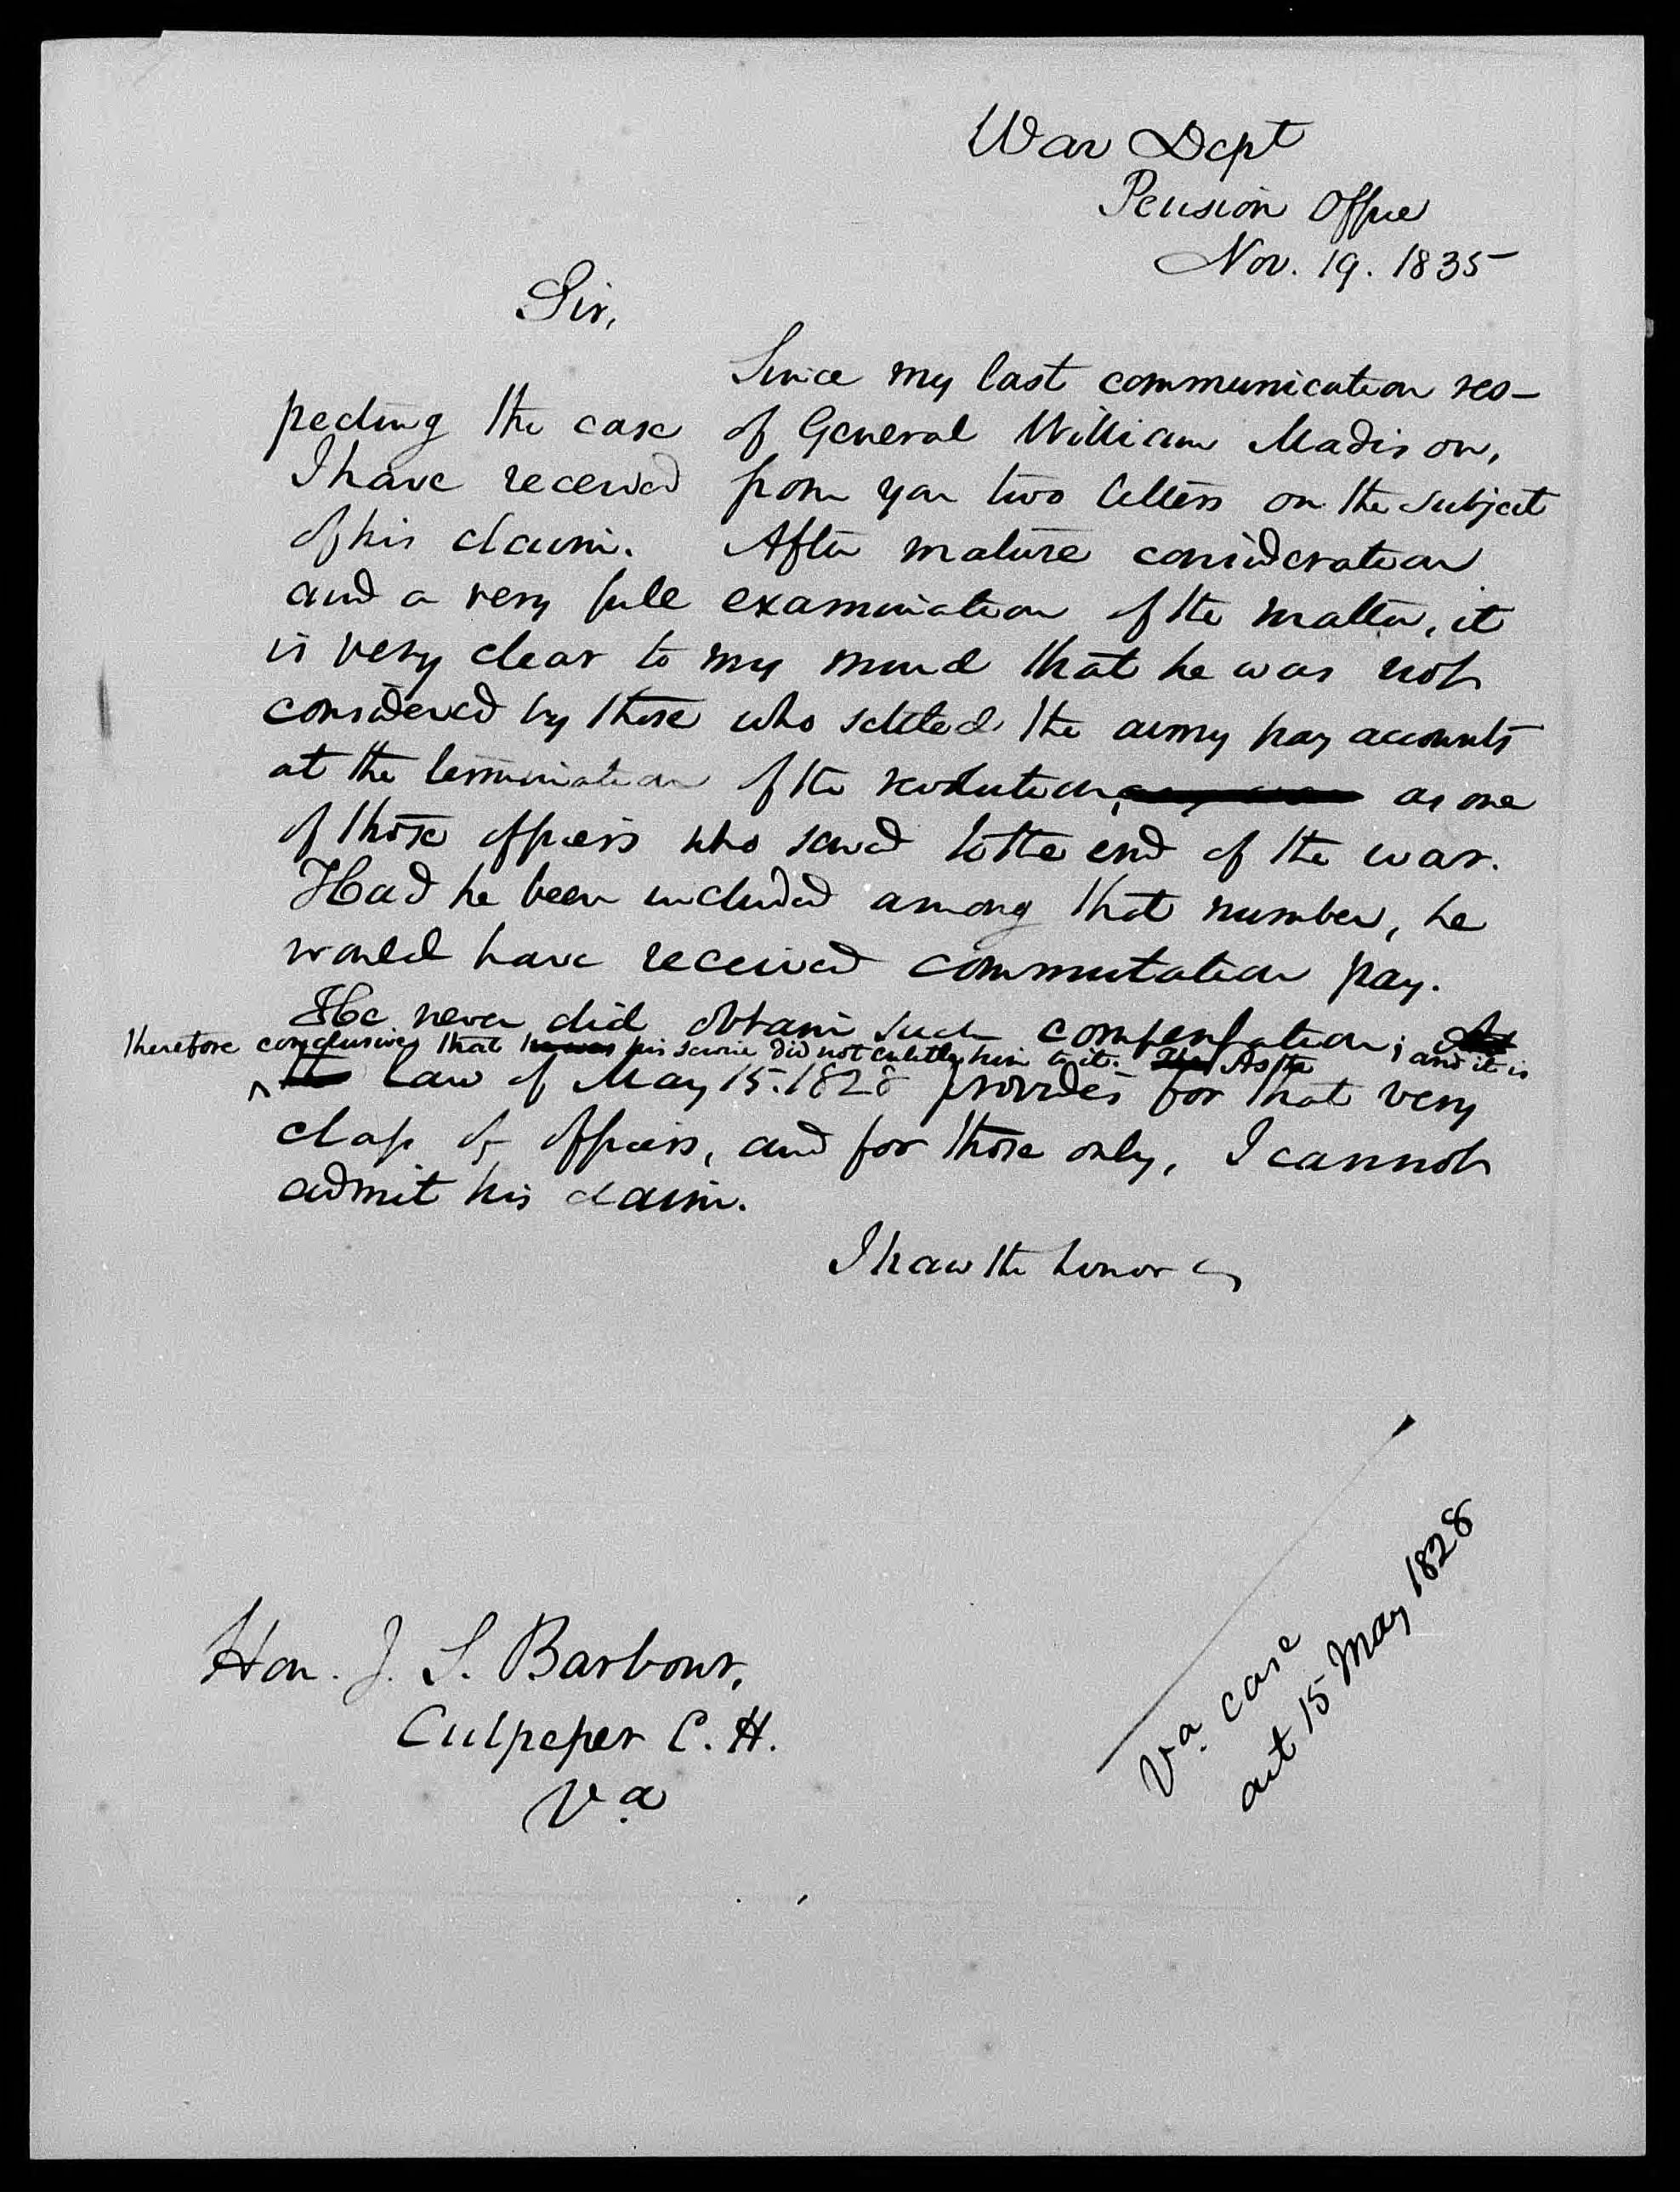 War Dept
Pension Office
Nov. 19. 1835
Sir,
Since my last communication res-
pecting the case of General William Madison,
I have received from you two letters on the subject
of his claim. After mature consideration
and a very full examination of the matter, it
is very clear to my mind that he was not
considered by those who settled the army pay accounts
at the termination of the revolution as one
of those officers who served to the end of the war.
Had he been included among that number, he
would have received commutation pay.
He never did obtain such compensation; and it is
therefore conclusive, that he was his service did not entitle him to it. The As the
the law of May 15. 1828 provides for that very
class of officers, and for those only, I cannot
admit his claim.
I have the honor &
Hon. J. S. Barbour,
Culpeper C. H.
Va
Va. case
act 15 May 1828